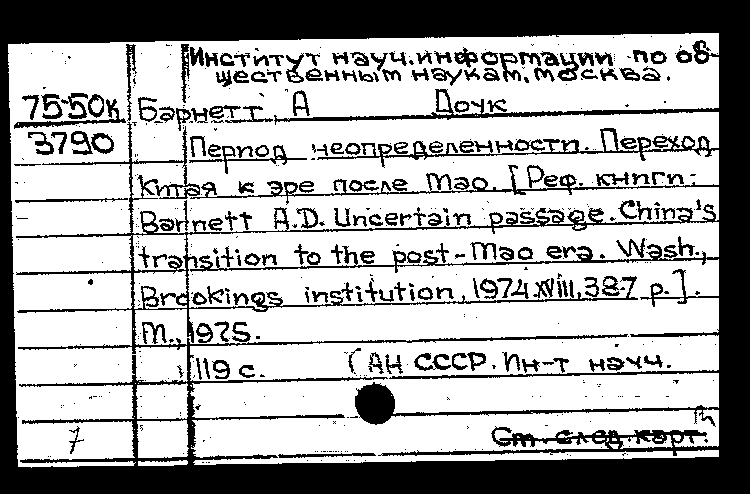 Институт науч.информации по об-
щественным наукам, москва.
75-50к Барнетт, А Доук
3790 Период неопределенности. Переход
Китая к эре после Мао. [Реф. книги:
Barnett A.D. Uncertain passage. China's
transition to the post-Mao era. Wash.,
Brookings institution, 1974.XVIII, 387 p.].
М., 1975.
119 с. (АН СССР. Ин-т науч.
См. след. карт.
7